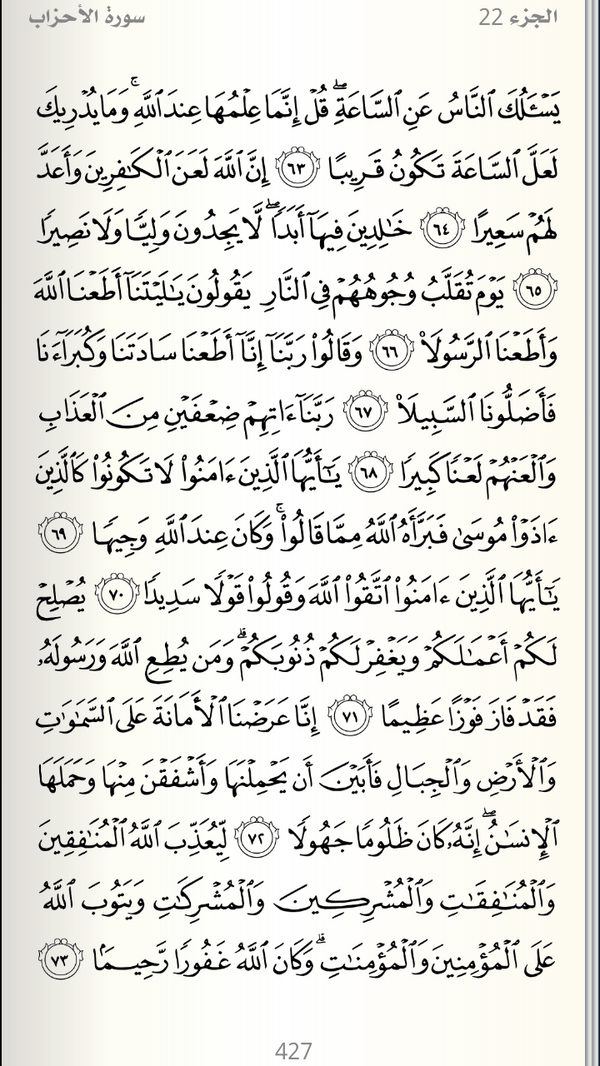 الجزء 22 سورة الأحزاب
يَسْـَٔلُكَ ٱلنَّاسُ عَنِ ٱلسَّاعَةِ ۖ قُلْ إِنَّمَا عِلْمُهَا عِندَ ٱللَّهِ ۚ وَمَا يُدْرِيكَ
لَعَلَّ ٱلسَّاعَةَ تَكُونُ قَرِيبًا ٦٣ إِنَّ ٱللَّهَ لَعَنَ ٱلْكَـٰفِرِينَ وَأَعَدَّ
لَهُمْ سَعِيرًا ٦٤ خَـٰلِدِينَ فِيهَآ أَبَدًا ۖ لَّا يَجِدُونَ وَلِيًّا وَلَا نَصِيرًا
٦٥ يَوْمَ تُقَلَّبُ وُجُوهُهُمْ فِى ٱلنَّارِ يَقُولُونَ يَـٰلَيْتَنَآ أَطَعْنَا ٱللَّهَ
وَأَطَعْنَا ٱلرَّسُولَا۠ ٦٦ وَقَالُوا۟ رَبَّنَآ إِنَّآ أَطَعْنَا سَادَتَنَا وَكُبَرَآءَنَا
فَأَضَلُّونَا ٱلسَّبِيلَا۠ ٦٧ رَبَّنَآ ءَاتِهِمْ ضِعْفَيْنِ مِنَ ٱلْعَذَابِ
وَٱلْعَنْهُمْ لَعْنًا كَبِيرًا ٦٨ يَـٰٓأَيُّهَا ٱلَّذِينَ ءَامَنُوا۟ لَا تَكُونُوا۟ كَٱلَّذِينَ
ءَاذَوْا۟ مُوسَىٰ فَبَرَّأَهُ ٱللَّهُ مِمَّا قَالُوا۟ ۚ وَكَانَ عِندَ ٱللَّهِ وَجِيهًا ٦٩
يَـٰٓأَيُّهَا ٱلَّذِينَ ءَامَنُوا۟ ٱتَّقُوا۟ ٱللَّهَ وَقُولُوا۟ قَوْلًا سَدِيدًا ٧٠ يُصْلِحْ
لَكُمْ أَعْمَـٰلَكُمْ وَيَغْفِرْ لَكُمْ ذُنُوبَكُمْ ۗ وَمَن يُطِعِ ٱللَّهَ وَرَسُولَهُۥ
فَقَدْ فَازَ فَوْزًا عَظِيمًا ٧١ إِنَّا عَرَضْنَا ٱلْأَمَانَةَ عَلَى ٱلسَّمَـٰوَٰتِ
وَٱلْأَرْضِ وَٱلْجِبَالِ فَأَبَيْنَ أَن يَحْمِلْنَهَا وَأَشْفَقْنَ مِنْهَا وَحَمَلَهَا
ٱلْإِنسَـٰنُ ۖ إِنَّهُۥ كَانَ ظَلُومًا جَهُولًا ٧٢ لِّيُعَذِّبَ ٱللَّهُ ٱلْمُنَـٰفِقِينَ
وَٱلْمُنَـٰفِقَـٰتِ وَٱلْمُشْرِكِينَ وَٱلْمُشْرِكَـٰتِ وَيَتُوبَ ٱللَّهُ
عَلَى ٱلْمُؤْمِنِينَ وَٱلْمُؤْمِنَـٰتِ ۗ وَكَانَ ٱللَّهُ غَفُورًا رَّحِيمًۢا ٧٣
427